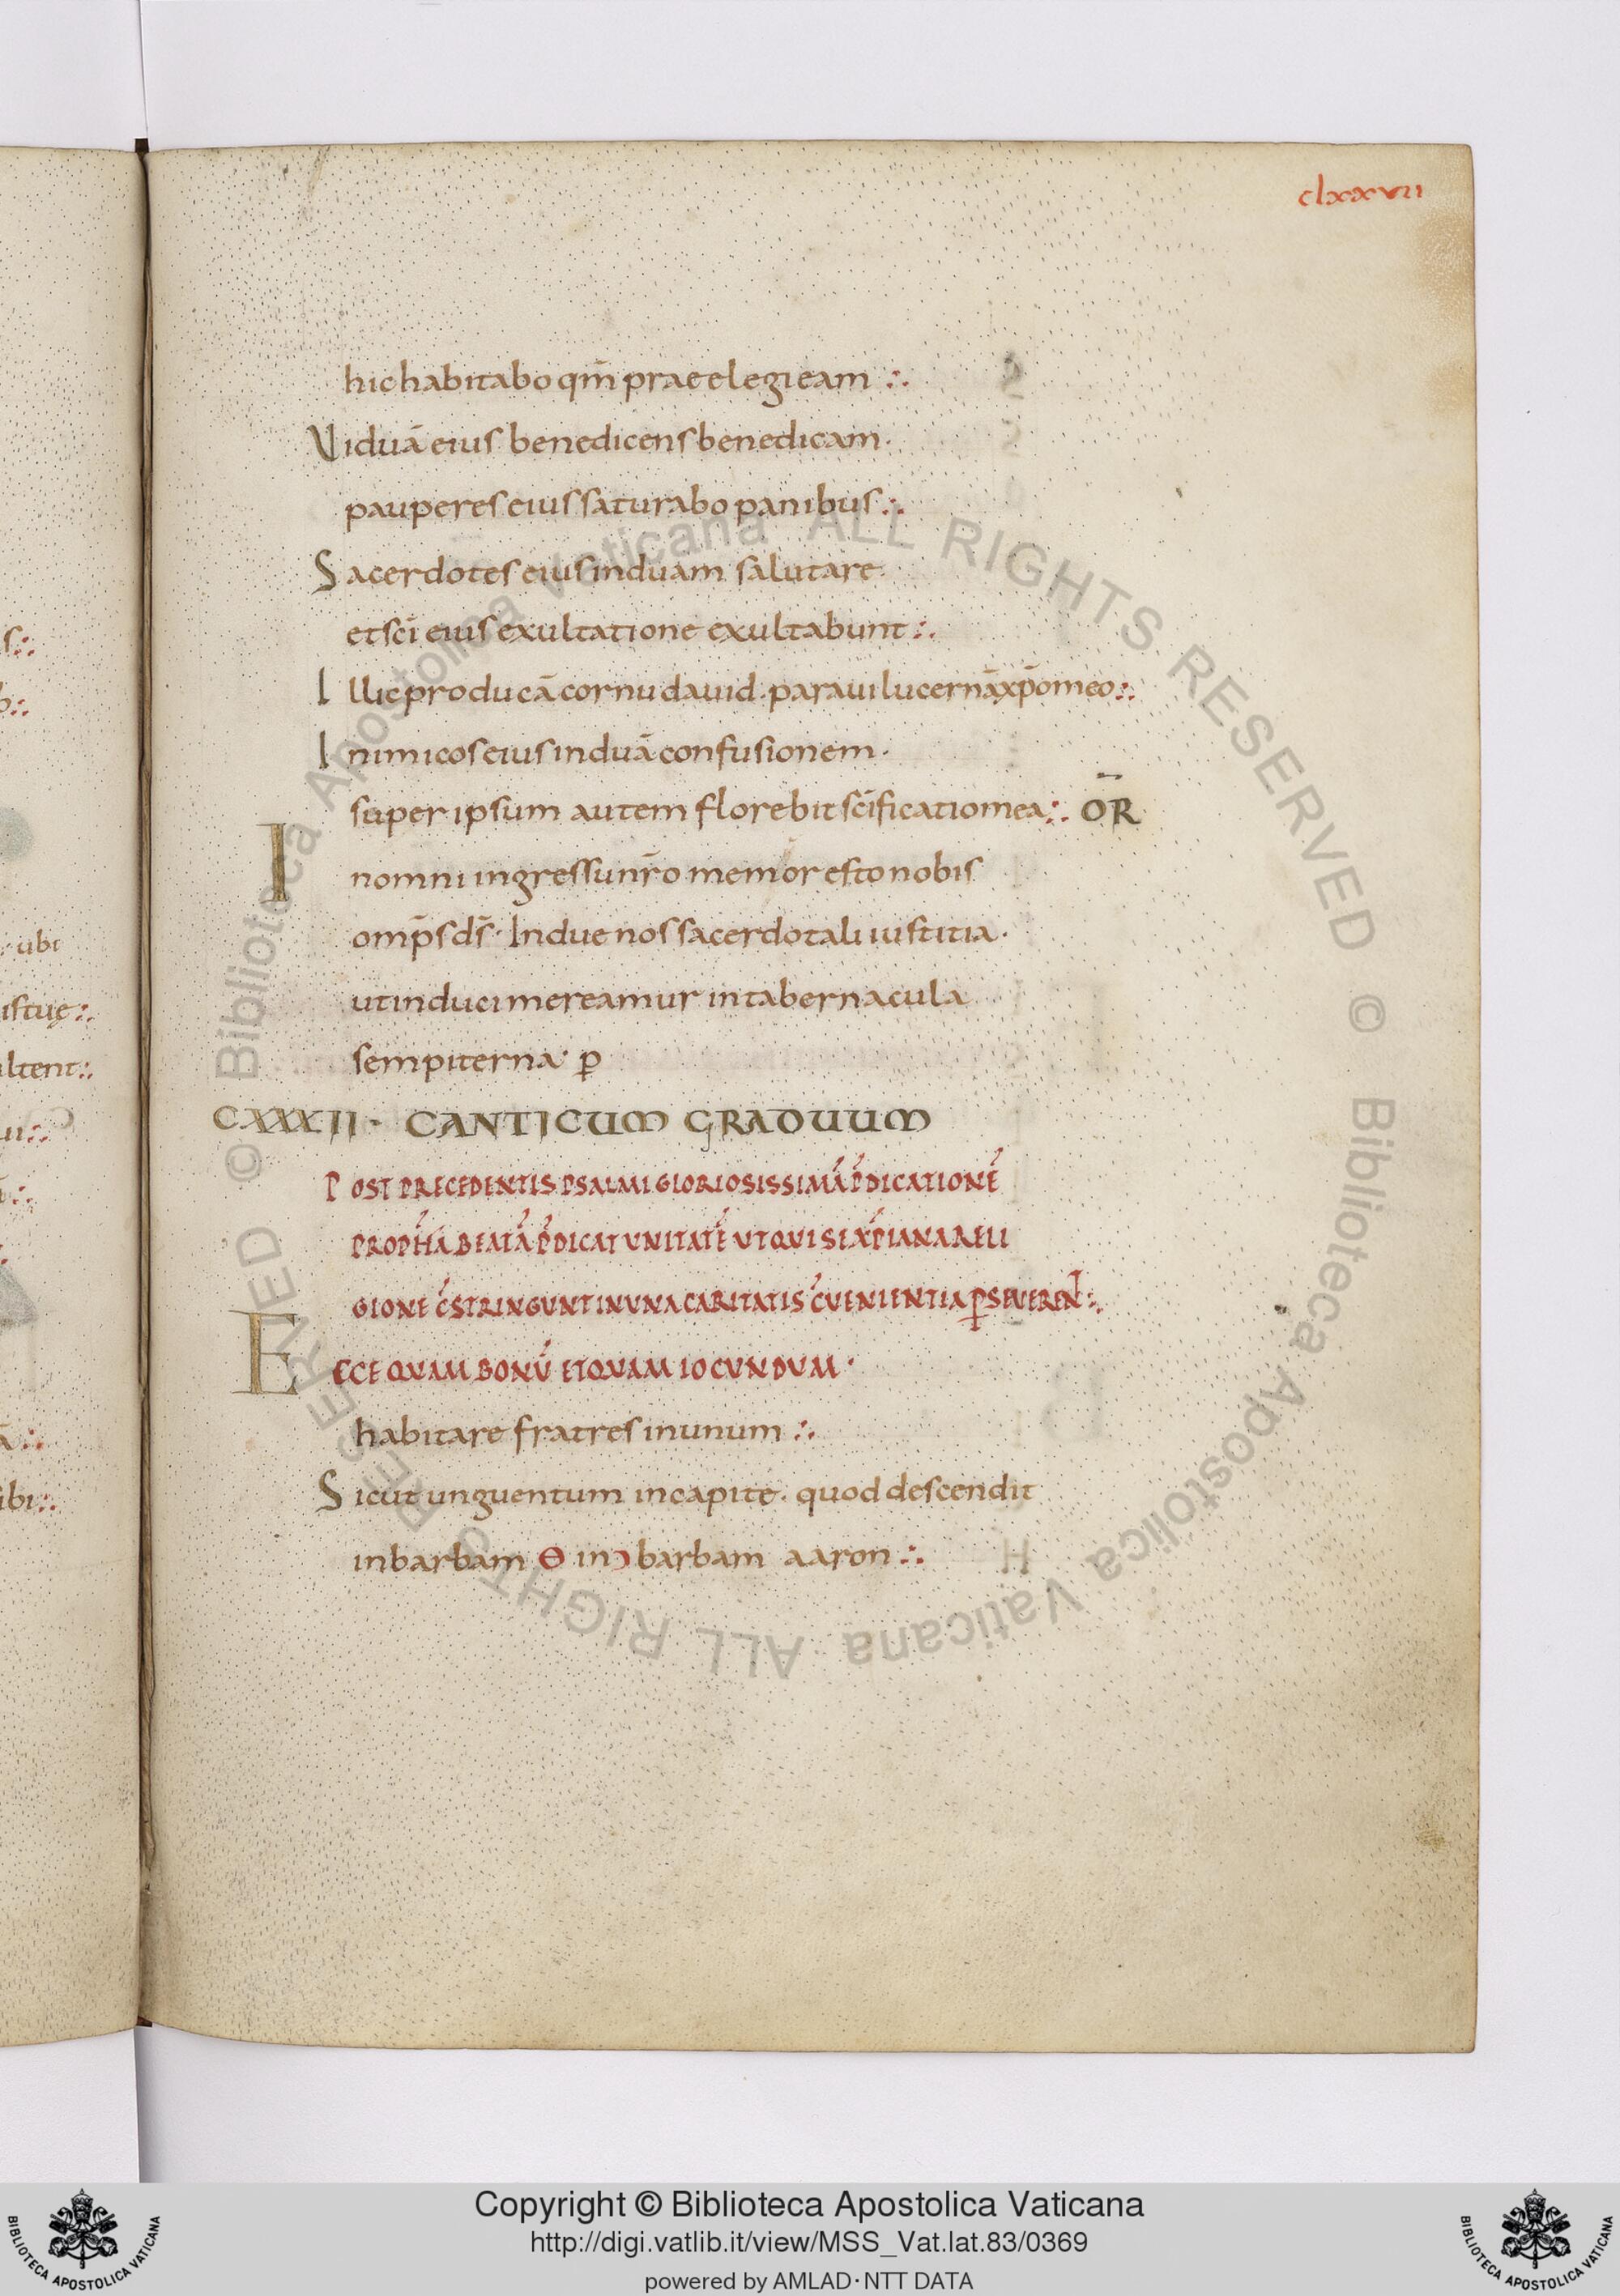 clxxvii
hic habitabo qm̄ prae elegi eam ∴
Viduā eius benedicens benedicam·
pauperes eius saturabo panibus ∴
Sacerdotes eius induam salutare·
et sc̄i eius exultatione exultabunt ∴
Illic producā cornu dauid· paraui lucernā xp̄o meo ∴
Inimicos eius induā confusionem·
super ipsum autem florebit sc̄ificatio mea ∴ OR̄
In omni ingressu nr̄o memor esto nobis
omp̄s ds̄· Indue nos sacerdotali iustitia·
ut induci mereamur in tabernacula
sempiterna· p
CXXXII· CANTICUM GRADUUM
POST PRECEDENTIS PSALMI GLORIOSISSIMĀ P̄DICATIONĒ
PROPH̄A BEATĀ P̄DICAT VNITATĒ VT QVI SE XP̄IANA RELI
GIONE C̄STRINGVNT IN VNA CARITATIS C̄VENIENTIA ꝑSEVEREN̄T ∴
ECCE QVAM BONŪ ET QVAM IOCVNDVM·
habitare fratres in unum ∴
Sicut unguentum in capite· quod descendit
in barbam Θ in ↄ barbam aaron ∴
© Biblioteca Apostolica Vaticana ALL RIGHTS RESERVED © Biblioteca Apostolica Vaticana ALL RIGHTS RESERVED
s ∴
b ∴
ubi
istuę ∴
ultent ∴
ui ∴
ā ∴
ibi ∴
Copyright © Biblioteca Apostolica Vaticana
http://digi.vatlib.it/view/MSS_Vat.lat.83/0369
powered by AMLAD·NTT DATA
BIBLIOTECA APOSTOLICA VATICANA
BIBLIOTECA APOSTOLICA VATICANA